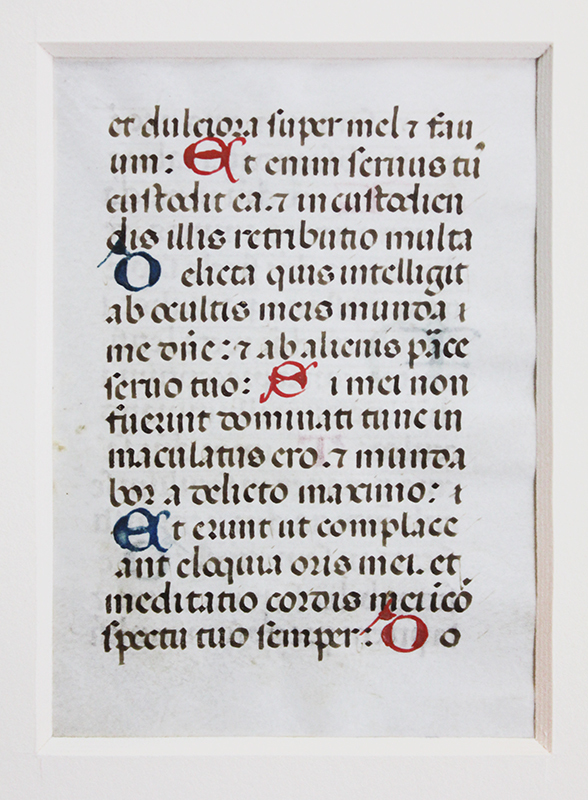 et dulciora super mel ⁊ fau
um: Et enim seruus tuꝰ
custodit ea. ⁊ in custodien
dis illis retributio multa
Delicta quis intelligit
ab occultis meis munda ı
me dn̄e: ⁊ ab alienis pāce
seruo tuo: Si mei non
fuerint dominati tunc in
maculatus ero. ⁊ munda
bor a delicto maximo: ı
Et erunt ut complace
ant eloquia oris mei. et
meditatio cordis mei i cō
spectu tuo semper: Do